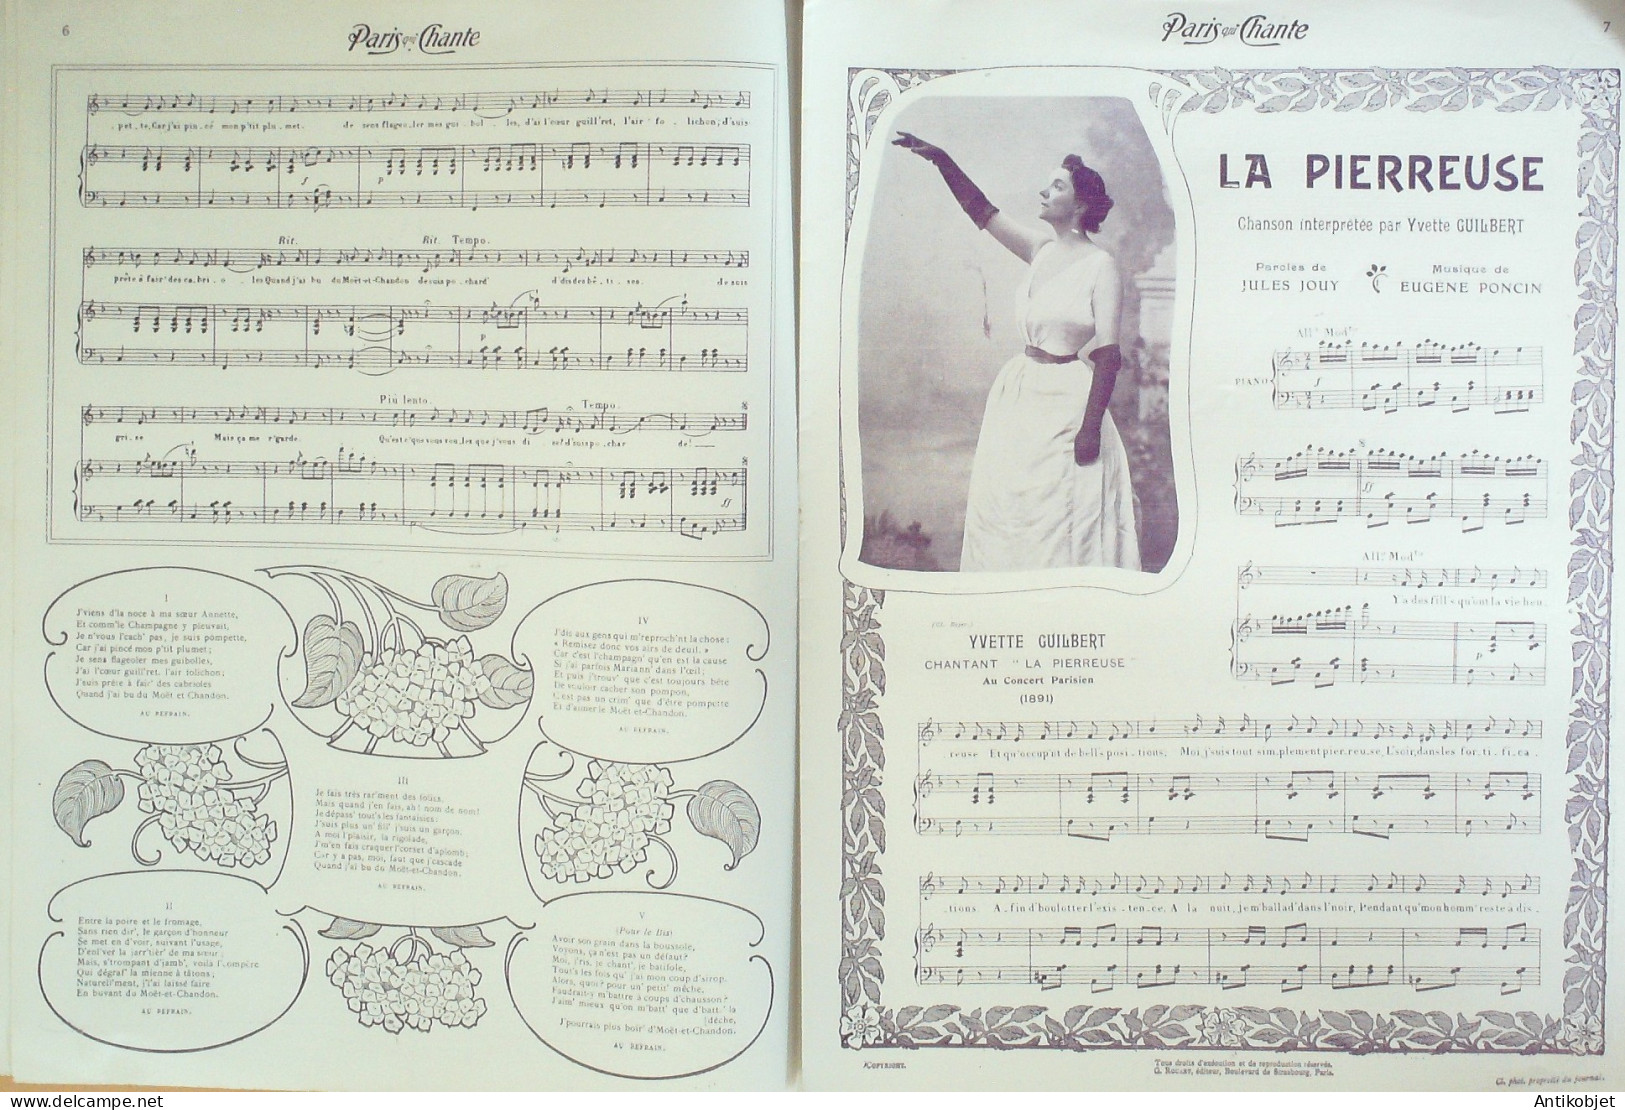 6
Paris qui Chante
pet-te, Car j'ai pin-cé mon p'tit plu-met. Je sens flageo-ler mes gui-bol-les, J'ai l'cœur guill'ret, l'air fo-lichon; J'suis
Rit.
Rit. Tempo.
prête à fair' des ca-bri-o-les Quand j'ai bu du Moët-et-Chandon Je suis po-chard' J'dis des bê-ti-ses. Je suis
Più lento.
Tempo.
gri-se Mais ça me r'garde. Qu'est-c'que vous vou-lez que j'vous di-se? J'suis po-char-de!
I
J'viens d'la noce à ma sœur Annette,
Et comm'le Champagne y pleuvait,
Je n'vous l'cach' pas, je suis pompette,
Car j'ai pincé mon p'tit plumet;
Je sens flageoler mes guibolles,
J'ai l'cœur guill'ret, l'air folichon;
J'suis prête à fair' des cabrioles
Quand j'ai bu du Moët et Chandon.
AU REFRAIN.
II
Entre la poire et le fromage,
Sans rien dir', le garçon d'honneur
Se met en d'voir, suivant l'usage,
D'enl'ver la jarr'tièr' de ma sœur;
Mais, s'trompant d'jamb', voilà l'compère
Qui dégraf' la mienne à tâtons;
Naturell'ment, j'l'ai laissé faire
En buvant du Moët-et-Chandon.
AU REFRAIN.
III
Je fais très rar'ment des folies,
Mais quand j'en fais, ah! nom de nom!
Je dépass' tout's les fantaisies;
J'suis plus un' fill' j'suis un garçon.
A moi l'plaisir, la rigolade,
J'm'en fais craquer l'corset d'aplomb;
Car y a pas, moi, faut que j'cascade
Quand j'ai bu du Moët-et-Chandon.
AU REFRAIN.
IV
J'dis aux gens qui m'reproch'nt la chose:
« Remisez donc vos airs de deuil. »
Car c'est l'champagn' qu'en est la cause
Si j'ai parfois Mariann' dans l'œil;
Et puis j'trouv' que c'est toujours bête
De vouloir cacher son pompon,
C'est pas un crim' que d'être pompette
Et d'aimer le Moët-et-Chandon.
AU REFRAIN.
V
(Pour le Bis)
Avoir son grain dans la boussole,
Voyons, ça n'est pas un défaut?
Moi, j'ris, je chant', je batifole,
Tout's les fois qu' j'ai mon coup d'sirop.
Alors, quoi? pour un' petit' mèche,
Faudrait-y m'battre à coups d'chausson?
J'aim' mieux qu'on m'batt' que d'batt' la
[dèche,
J'pourrais plus boir' d'Moët-et-Chandon.
AU REFRAIN.
7
Paris qui Chante
LA PIERREUSE
Chanson interprétée par Yvette GUILBERT
Paroles de
JULES JOUY
Musique de
EUGÈNE PONCIN
All° Mod^to
PIANO
All° Mod^to
Y a des fill's qu'ont la vie heu-
YVETTE GUILBERT
CHANTANT "LA PIERREUSE"
Au Concert Parisien
(1891)
reuse Et qu'occup'nt de bell's posi-tions; Moi, j'suis tout sim-plement pier-reu-se, L'soir, dans les for-ti-fi-ca-
-tions. A-fin d'boulotter l'exis-ten-ce, A la nuit, je m'ballad' dans l'noir, Pendant qu'mon homm' reste à dis-
COPYRIGHT.
Tous droits d'exécution et de reproduction réservés.
G. ROUART, éditeur, Boulevard de Strasbourg, Paris.
Cl. phot. propriété du journal.
Antikobjet